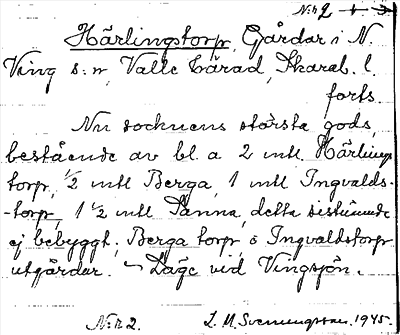 N:r 2
Härlingstorp, Gårdar i N.
Ving s:n, Valle härad, Skarab. l.
forts.
Nu socknens största gods,
bestående av bl. a 2 mtl. Härlings
torp, 1/2 mtl Berga, 1 mtl Ingvalds-
-torp, 1 1/2 mtl Panna, detta sistnämnde
ej bebyggt; Berga torp o Ingvaldstorp
utgårdar. – Läge vid Vingsjön.
N:r 2. L. M. Svenungsson. 1945.